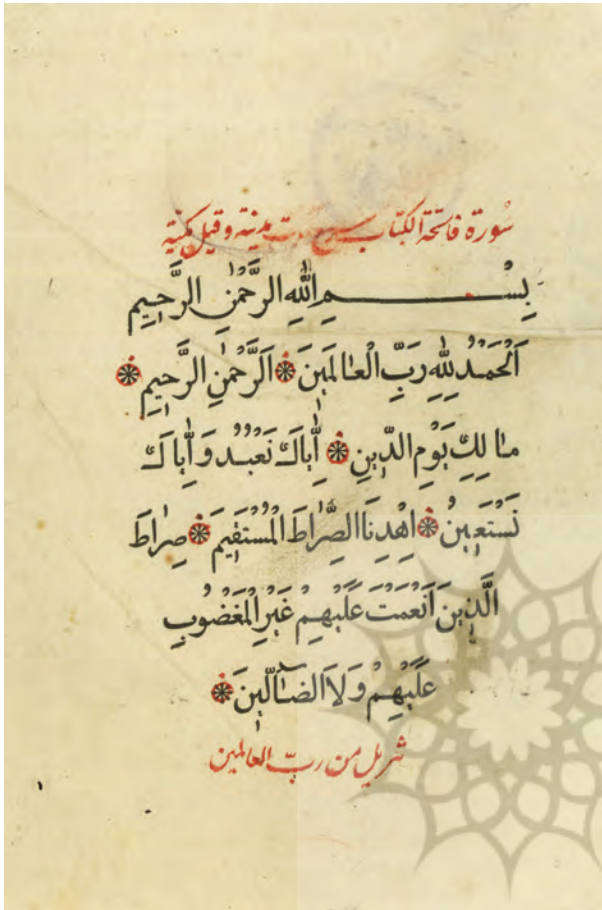 سُورة فاتحة الكتاب سبع مدينة وقيل مكية
بِسْمِ اللهِ الرَّحْمٰنِ الرَّحِيمِ
اَلْحَمْدُ لِلّٰهِ رَبِّ الْعَالَمِينَ اَلرَّحْمٰنِ الرَّحِيمِ
مَالِكِ يَوْمِ الدِّينِ إِيَّاكَ نَعْبُدُ وَإِيَّاكَ
نَسْتَعِينُ اِهْدِنَا الصِّرَاطَ الْمُسْتَقِيمَ صِرَاطَ
الَّذِينَ اَنْعَمْتَ عَلَيْهِمْ غَيْرِ الْمَغْضُوبِ
عَلَيْهِمْ وَلَا الضَّآلِّينَ
من ربّ العالمين